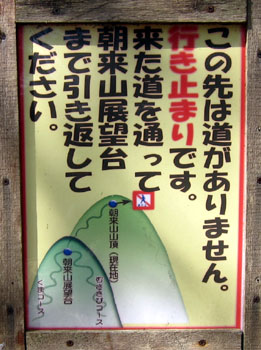 この先は道がありません。
行き止まりです。
来た道を通って
朝来山展望台
まで引き返して
ください。
朝来山山頂（現在地）
朝来山展望台